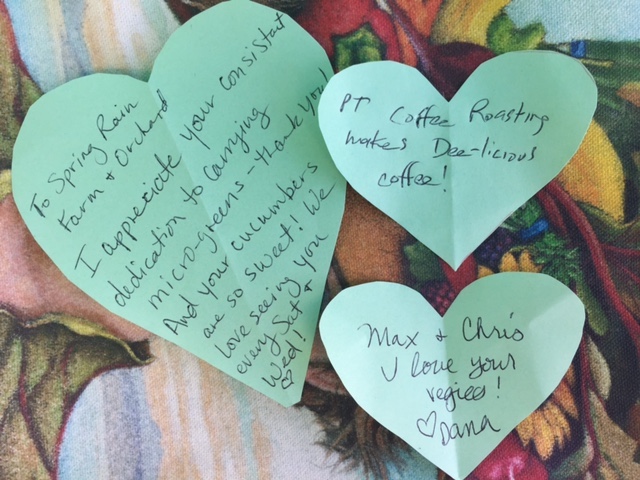 To Spring Rain
Farm + Orchard
I appreciate your consistant
dedication to carrying
micro-greens - thank you!
And your cucumbers
are so sweet! We
love seeing you
every Sat +
Wed! ♡
PT Coffee Roasting
makes Dee-licious
coffee!
Max + Chris
I love your
vegies!
♡Dana